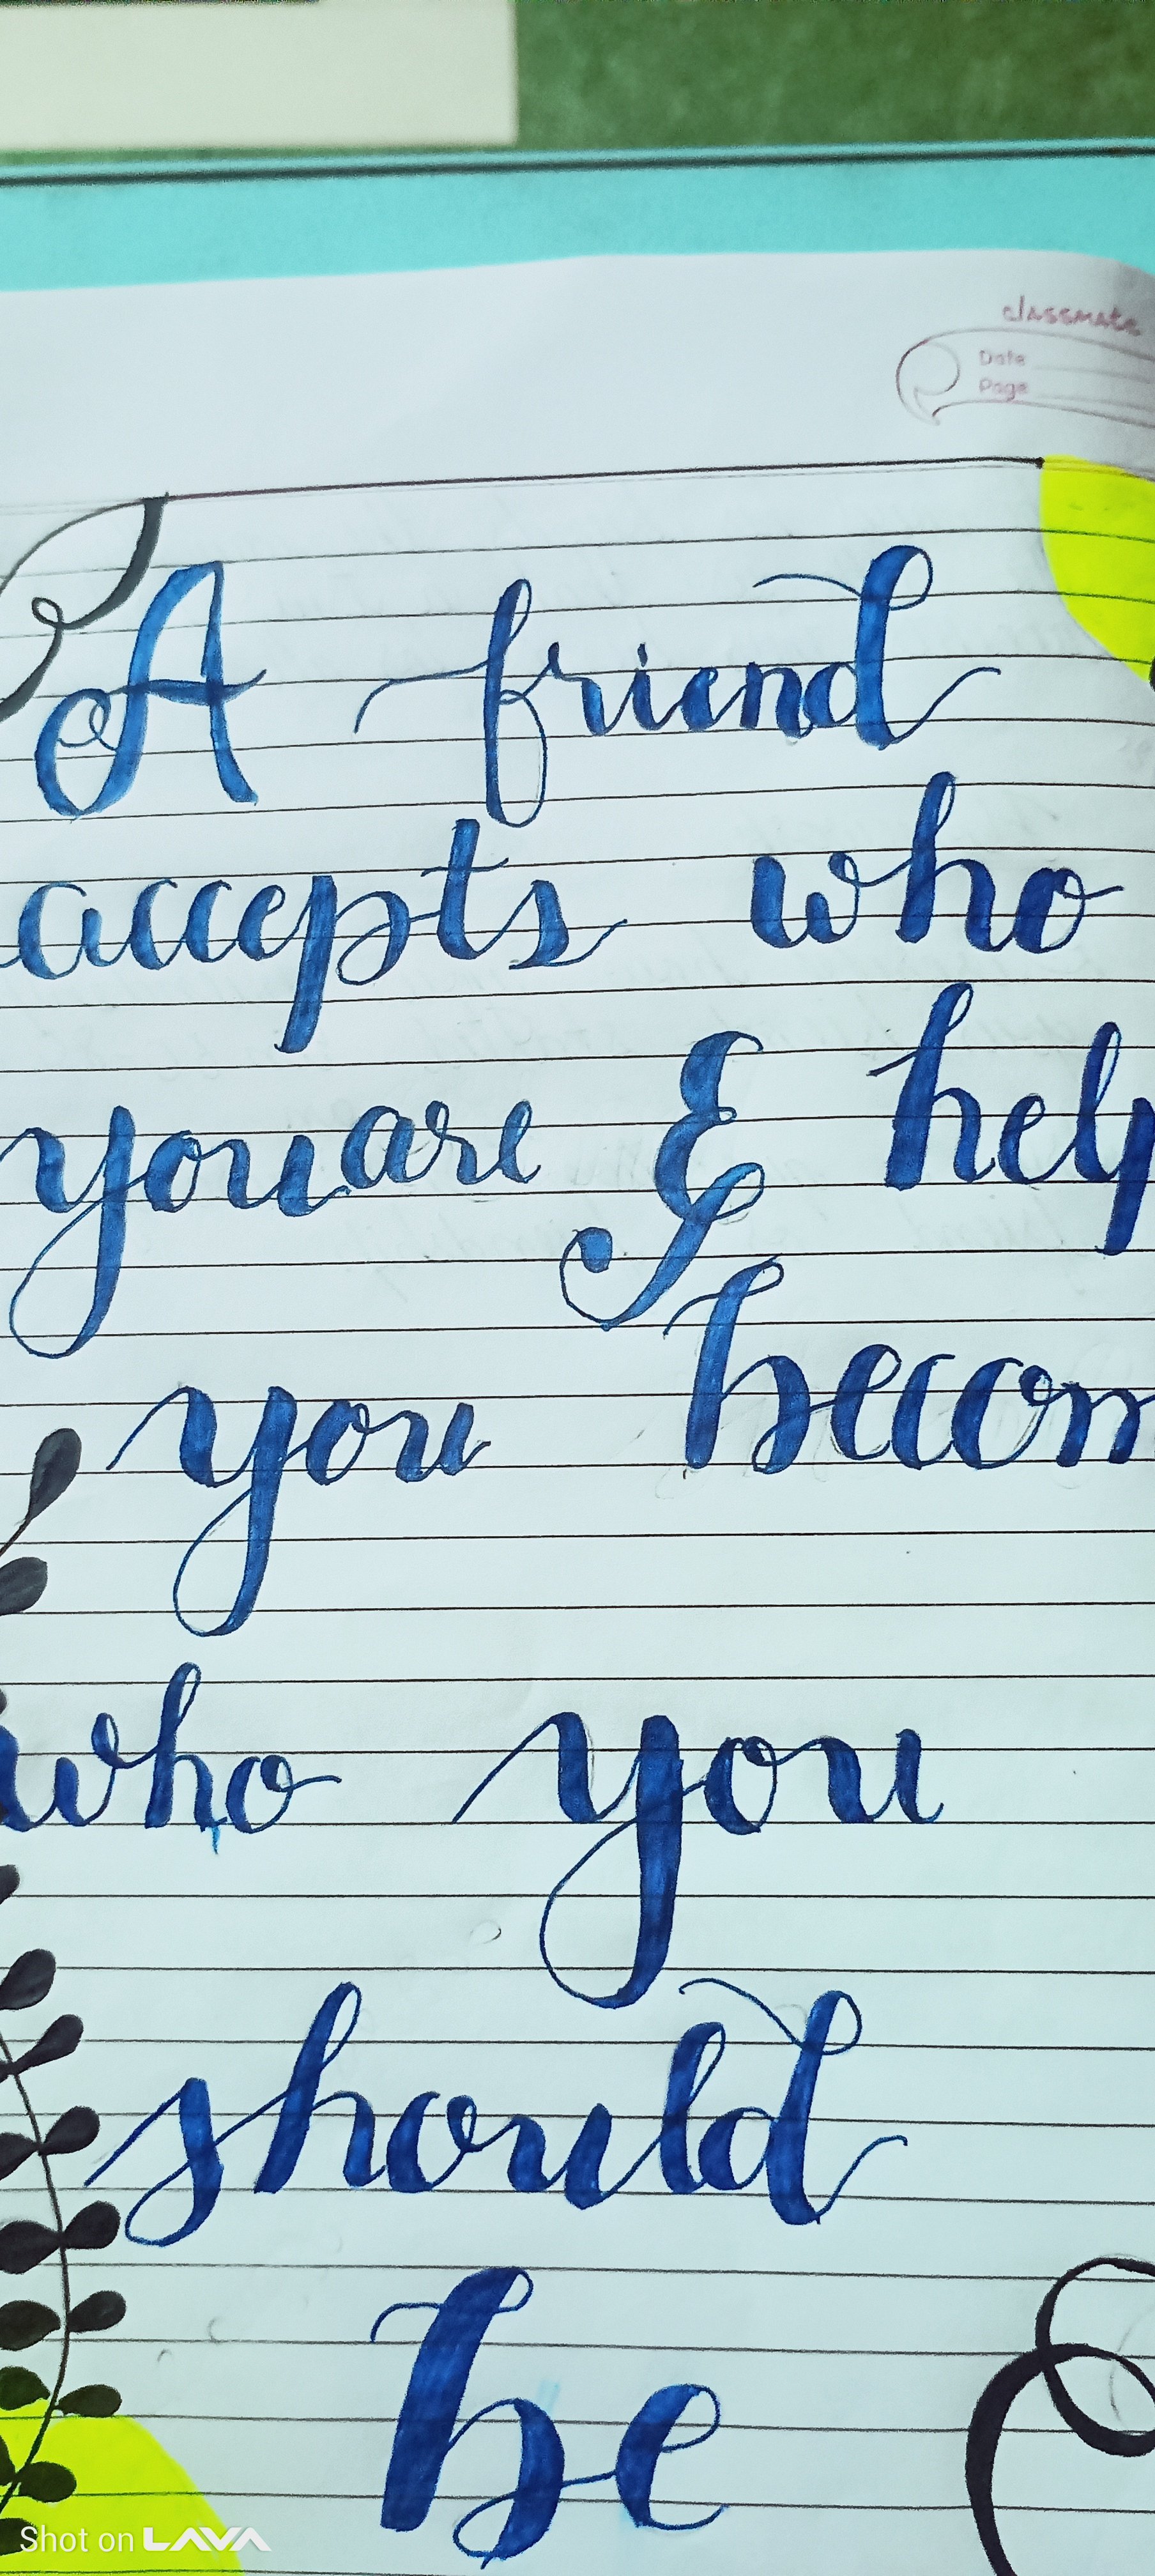 classmate
Date
Page
A friend
accepts who
you are & help
you becom
who you
should
be
Shot on LAVA